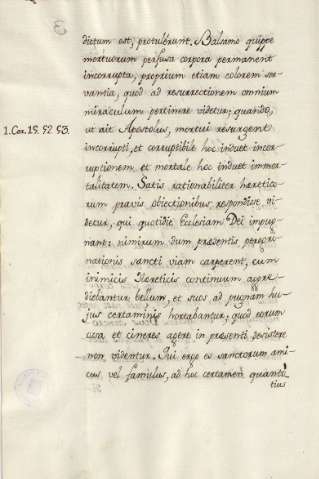 dictum est, protulerunt. Balsamo quippe
mortuorum perfusa corpora permanent
incorrupta, proprium etiam colorem ser-
vantia, quod ad resurrectionem omnium
miraculum pertinere videtur, quando,
1. Cor. 15. 52 53.
ut ait Apostolus, mortui resurgent
incorrupti, et corruptibile hoc induet incor-
ruptionem et mortale hoc induet immor-
talitatem. Satis rationabiliter hæretico-
rum pravis obiectionibus respondisse vi-
detur, qui quotidie Ecclesiam Dei impug-
nant: nimirum dum præsentis peregri-
nationis sancti viam carperent, cum
inimicis Hæreticis continuum aggre-
diebantur bellum, et suos ad pugnam hu-
jus certaminis hortabantur; quod eorum
ossa et cineres agere in præsenti desistere
non videntur. Qui ergo es sanctorum ami-
cus, vel famulus, ad hoc certamen quanto-
tius